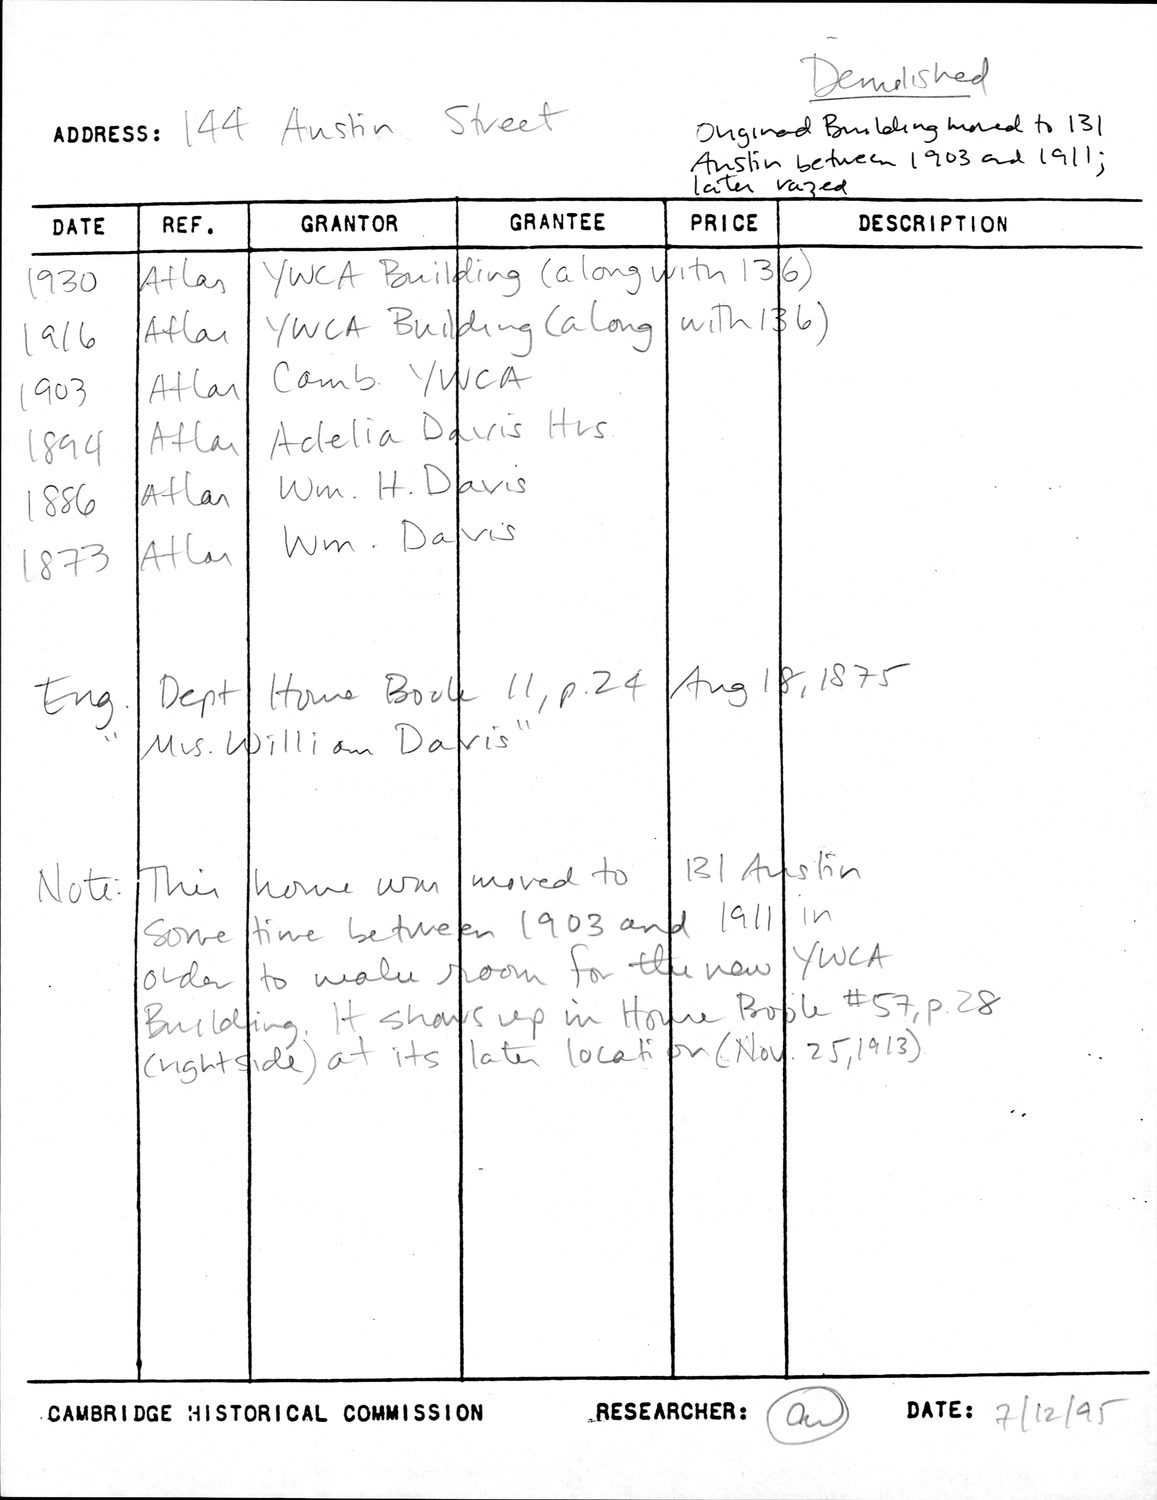 Demolished
ADDRESS: 144 Austin Street
Original Building moved to 131
Austin between 1903 and 1911;
later razed
DATE REF. GRANTOR GRANTEE PRICE DESCRIPTION
1930 Atlas YWCA Building (along with 136)
1916 Atlas YWCA Building (along with 136)
1903 Atlas Camb. YWCA
1894 Atlas Adelia Davis Hrs.
1886 Atlas Wm. H. Davis
1873 Atlas Wm. Davis
Eng. Dept House Book 11, p.24 Aug 18, 1875
"Mrs. William Davis"
Note: This house was moved to 131 Austin
Some time between 1903 and 1911 in
order to make room for the new YWCA
Building. It shows up in House Book #57, p.28
(rightside) at its later location (Nov. 25, 1913)
CAMBRIDGE HISTORICAL COMMISSION RESEARCHER: DATE: 7/12/95